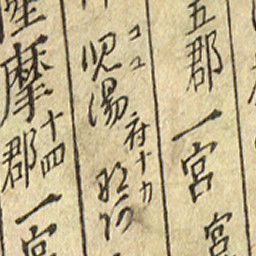 五郡 一宮 宮
児湯 コユ 府十カ 那珂
薩摩郡 十四 一宮